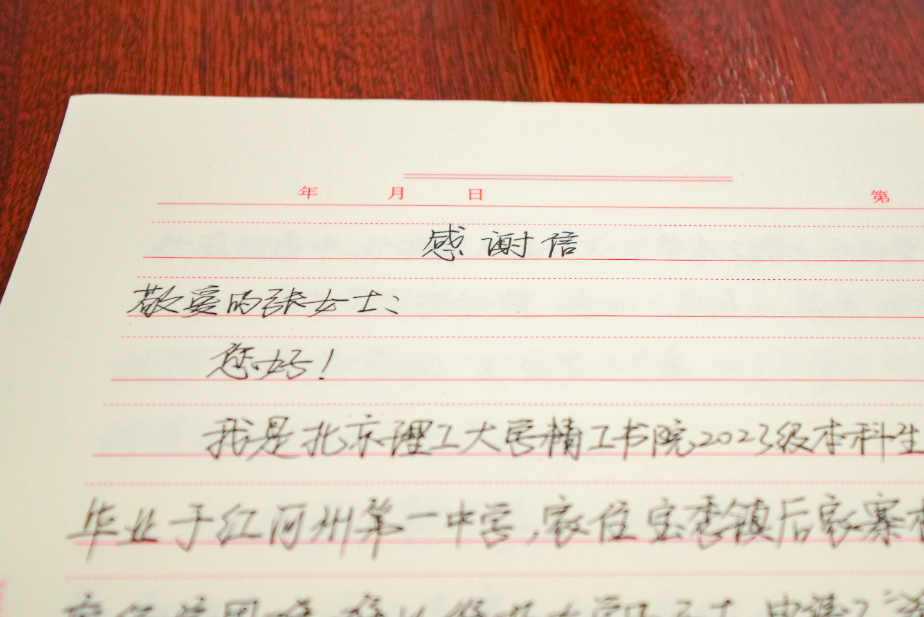 年 月 日 第
感谢信
敬爱的张女士：
您好！
我是北京理工大学精工书院2023级本科生
毕业于红河州第一中学，家住宝秀镇后家寨